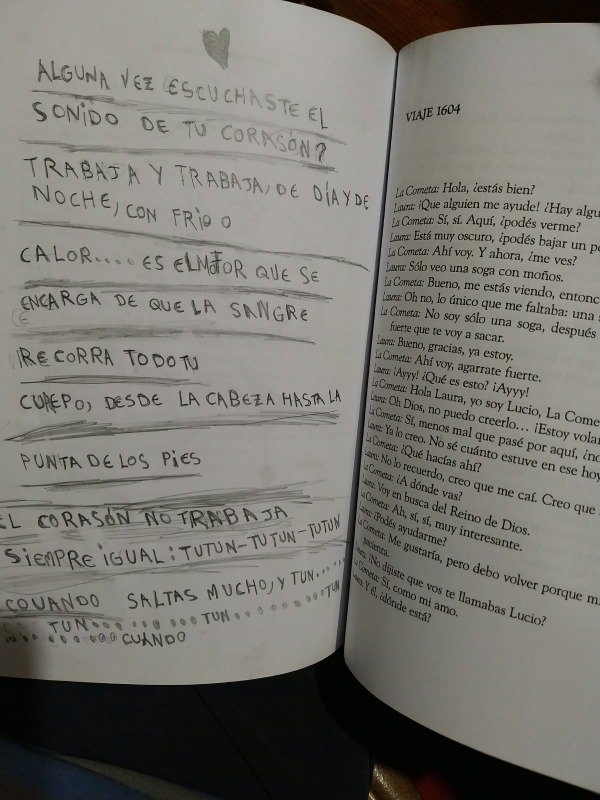 ALGUNA VEZ ESCUCHASTE EL
SONIDO DE TU CORASÓN?
TRABAJA Y TRABAJA, DE DÍA Y DE
NOCHE, CON FRIO O
CALOR.... ES EL MOTOR QUE SE
ENCARGA DE QUE LA SANGRE
RECORRA TODO TU
CUERPO, DESDE LA CABEZA HASTA LA
PUNTA DE LOS PIES
EL CORASÓN NO TRABAJA
SIEMPRE IGUAL: TUTUN-TUTUN-TUTUN
COUANDO SALTAS MUCHO, Y TUN......
TUN............TUN............TUN
............CUANDO
VIAJE 1604
La Cometa: Hola, ¿estás bien?
Laura: ¡Que alguien me ayude! ¿Hay algu
La Cometa: Sí, sí. Aquí, ¿podés verme?
Laura: Está muy oscuro, ¿podés bajar un po
La Cometa: Ahí voy. Y ahora, ¿me ves?
Laura: Sólo veo una soga con moños.
La Cometa: Bueno, me estás viendo, entonc
Laura: Oh no, lo único que me faltaba: una s
La Cometa: No soy sólo una soga, después
fuerte que te voy a sacar.
Laura: Bueno, gracias, ya estoy.
La Cometa: Ahí voy, agarrate fuerte.
Laura: ¡Ayyy! ¿Qué es esto? ¡Ayyy!
La Cometa: Hola Laura, yo soy Lucio, La Come
Laura: Oh Dios, no puedo creerlo… ¡Estoy volan
La Cometa: Sí, menos mal que pasé por aquí, ¿no
Laura: Ya lo creo. No sé cuánto estuve en ese hoy
La Cometa: ¿Qué hacías ahí?
Laura: No lo recuerdo, creo que me caí. Creo que
La Cometa: ¿A dónde vas?
Laura: Voy en busca del Reino de Dios.
La Cometa: Ah, sí, sí, muy interesante.
Laura: ¿Podés ayudarme?
La Cometa: Me gustaría, pero debo volver porque mi
pacienta.
Laura: ¿No dijiste que vos te llamabas Lucio?
La Cometa: Sí, como mi amo.
Laura: Y él, ¿dónde está?